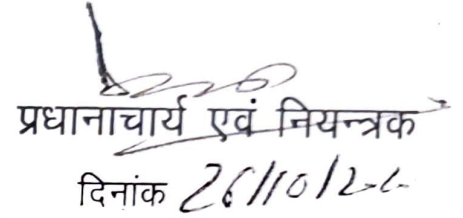 प्रधानाचार्य एवं नियन्त्रक
दिनांक 26/10/22